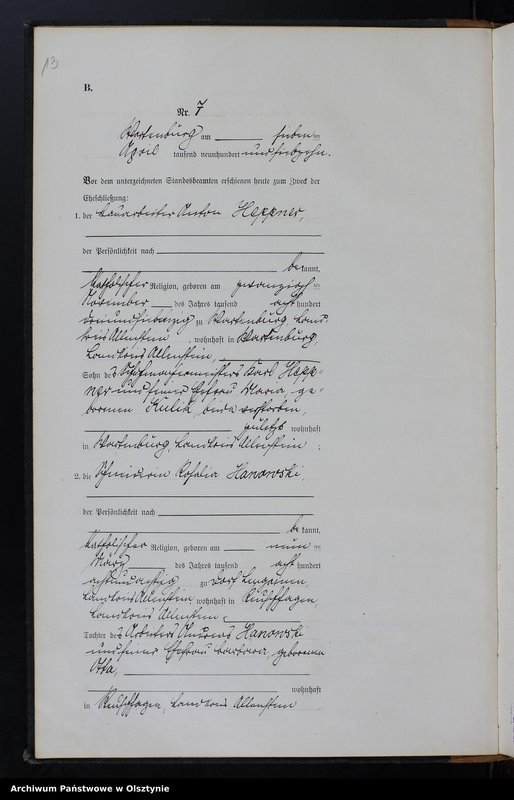 13
B.
Nr. 7
Wartenburg am sieben ten
April tausend neunhundert und siebzehn.
Vor dem unterzeichneten Standesbeamten erschienen heute zum Zweck der
Eheschließung:
1. der Bauarbeiter Anton Heppner,
der Persönlichkeit nach
be kannt,
katholischer Religion, geboren am zwanzigsten
November des Jahres tausend acht hundert
dreiundsiebenzig zu Wartenburg, Land-
kreis Allenstein, wohnhaft in Wartenburg,
Landkreis Allenstein,
Sohn des Schuhmachermeisters Karl Hepp-
ner und seiner Ehefrau Maria, ge-
borenen Kulik, beide verstorben,
zuletzt wohnhaft
in Wartenburg, Landkreis Allenstein ;
2. die Schneiderin Rosalia Hanowski,
der Persönlichkeit nach
be kannt,
katholischer Religion, geboren am neun ten
März des Jahres tausend acht hundert
achtundachtzig, zu Dorf
Landkreis Allenstein, wohnhaft in Reuschhagen,
Landkreis Allenstein,
Tochter des Arbeiters Andreas Hanowski
und seiner Ehefrau Barbara, geborenen
Otta,
wohnhaft
in Reuschhagen, Landkreis Allenstein.
Archiwum Państwowe w Olsztynie